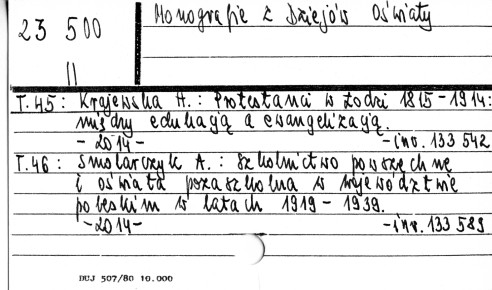 23 500
II
Monografie z Dziejów Oświaty
T.45: Krajewska H.: Protestanci w Łodzi 1815-1914:
między edukacją a ewangelizacją.
-2014- -inv. 133 542
T.46: Smolarczyk A.: Szkolnictwo powszechne
i oświata pozaszkolna w województwie
poleskim w latach 1919-1939.
-2014- -inv. 133 589
DUJ 507/80 10.000